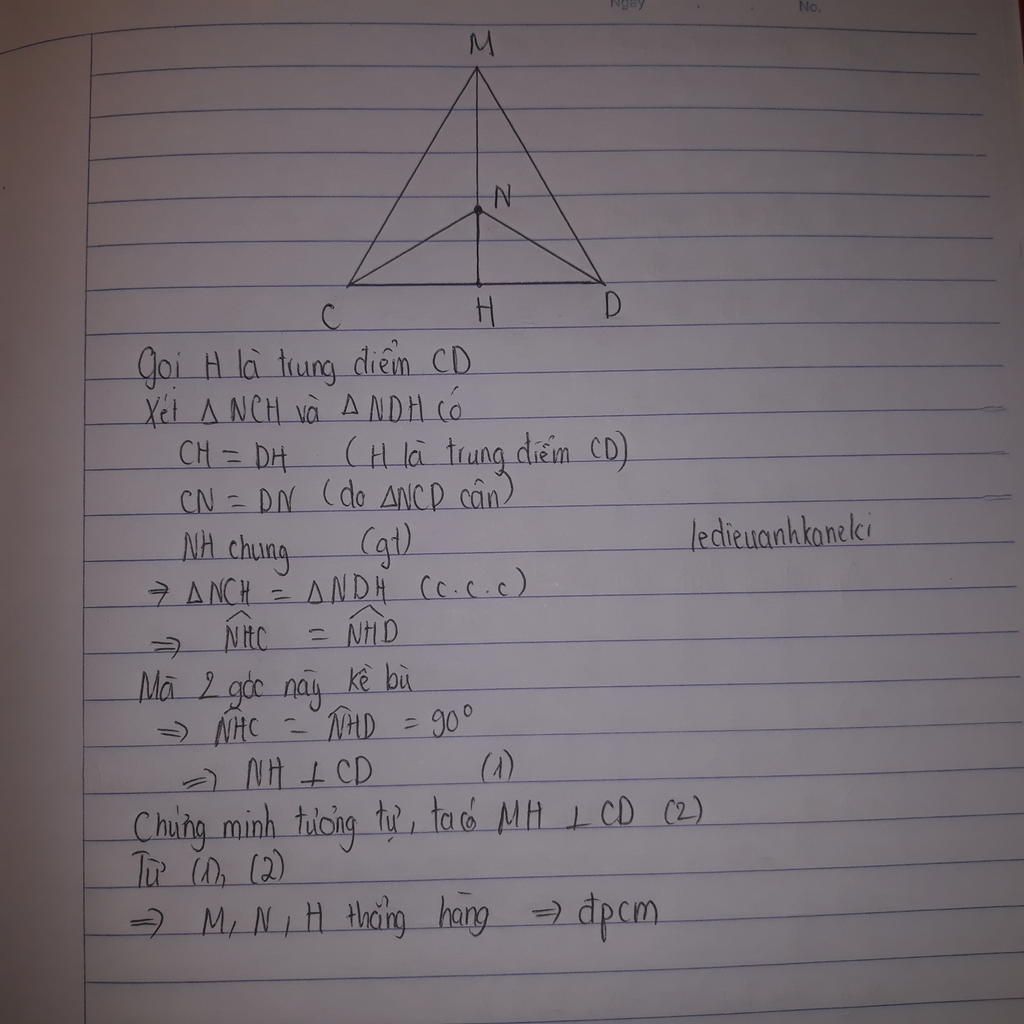 Ngày No.
M
N
C H D
Gọi H là trung điểm CD
Xét Δ NCH và Δ NDH có
CH = DH (H là trung điểm CD)
CN = DN (do ΔNCD cân)
NH chung (gt)
ledieuanhkaneki
⇒ ΔNCH = ΔNDH (c.c.c)
⇒ \widehat{NHC} = \widehat{NHD}
Mà 2 góc này kề bù
⇒ \widehat{NHC} = \widehat{NHD} = 90°
⇒ NH ⊥ CD (1)
Chứng minh tương tự, ta có MH ⊥ CD (2)
Từ (1), (2)
⇒ M, N, H thẳng hàng ⇒ đpcm